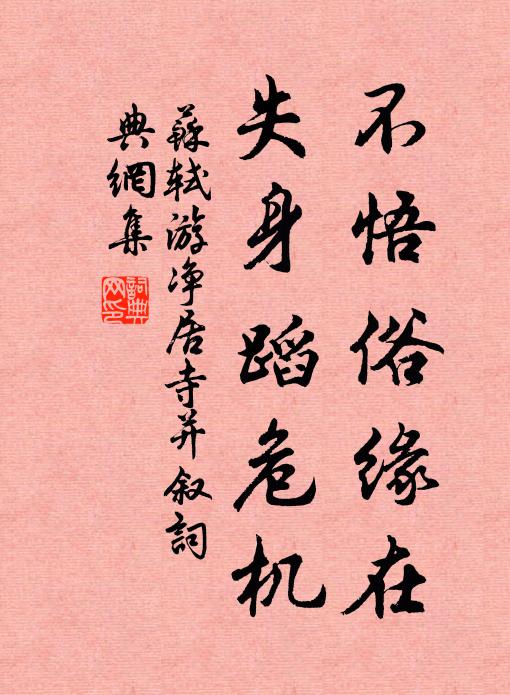 不悟俗缘在
失身蹈危机
蘇轼游净居寺并叙詞
典網集
詞典
网印